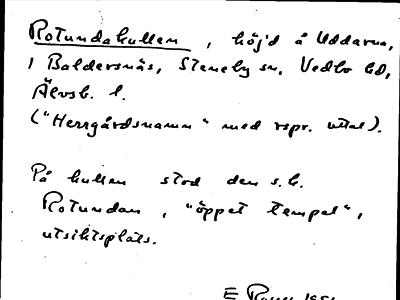 Rotundakullen, höjd å Uddarna,
i Baldersnäs, Steneby sn, Vedbo hd,
Älvsb. l.
("Herrgårdsnamn" med rspr. uttal).
På kullen stod den s.k.
Rotundan, "öppet tempel",
utsiktsplats.
E